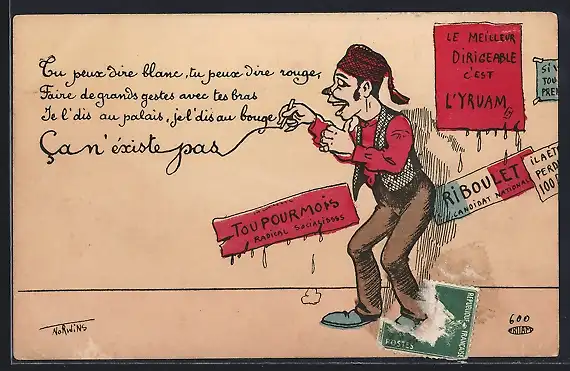 Tu peux dire blanc, tu peux dire rouge,
Faire de grands gestes avec tes bras
Je l'dis au palais, je l'dis au bouge
Ça n'éxiste pas
LE MEILLEUR
DIRIGEABLE
C'EST
L'YRUAM
SI V
TOU
PREN
RIBOULET
CANDIDAT NATIONAL
IL A ÉTÉ
PERD
100
TOUPOURMOIS
RADICAL SOCIALISOUS
NORWINS
REPUBLIQUE FRANÇAISE
POSTES
600